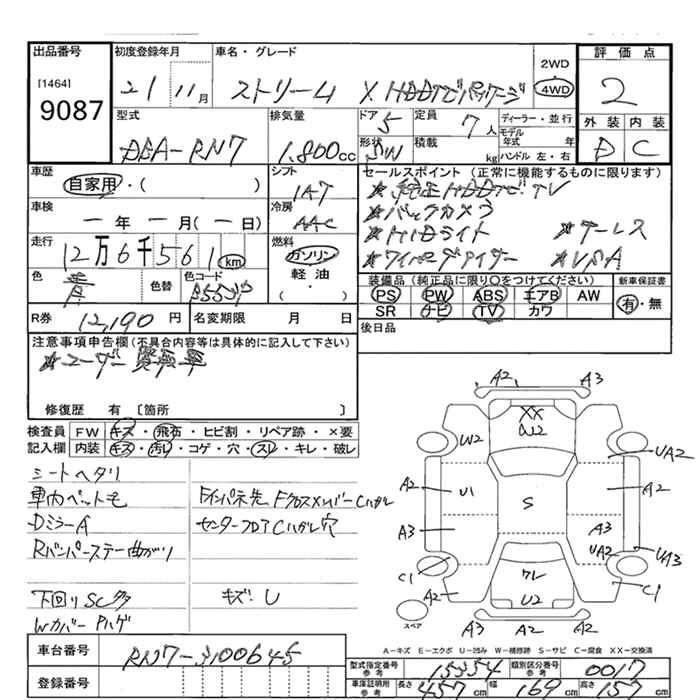 出品番号 初度登録年月 車名・グレード 2WD 4WD 評価点
[1464] 9087 21 11月 ストリーム X HDDナビパッケージ 2
型式 排気量 ドア 5 定員 7人 ディーラー・並行 外装 内装
DBA-RN7 1,800cc 形状 SW 積載 kg モデル年式 年 ハンドル 左・右 D C
車歴 シフト セールスポイント(正常に機能するものに限ります)
自家用・( ) IAT ★純正HDDナビTV
車検 冷房 ★バックカメラ
ー年ー月(ー日) AAC ★HIDライト ★キーレス
走行 燃料 ★ワイパーデアイサー ★VSA
12万6千561km ガソリン
色 色替 色コード 軽油・ 装備品(純正品に限り○をつけてください) 新車保証書
青 B553P ( ) PS PW ABS エアB AW 有・無
SR ナビ TV カワ
R券 12,190円 名変期限 月 日 後日品
注意事項申告欄(不具合内容等は具体的に記入して下さい)
★ユーザー買取車
修復歴 有 [箇所 ]
検査員 FW キズ・飛石・ヒビ割・リペア跡・×要
記入欄 内装 キズ・汚レ・コゲ・穴・スレ・キレ・破レ
シートヘタリ
車内ペット毛 Fインパネ先、FクロスメンバーCハガレ
DミラーA センターフロアCハガレ穴
Rバンパーステー曲がり
下回りSCタタ キズU
WカバーPハゲ
A2 A3
XX W2
W2 UA2
A2 U1 S A2
A3 A3 UA2 UA3
C1 ワレ C1
A2 U2
スペア A3 A2 A2
A-キズ E-エクボ U-凹み W-補修跡 S-サビ C-腐食 XX-交換済
車台番号 RN7-3100645 型式指定番号 参考 15354 類別区分番号 参考 0017
登録番号 車庫証明用 参考 長さ 457cm 幅 169cm 高さ 157cm